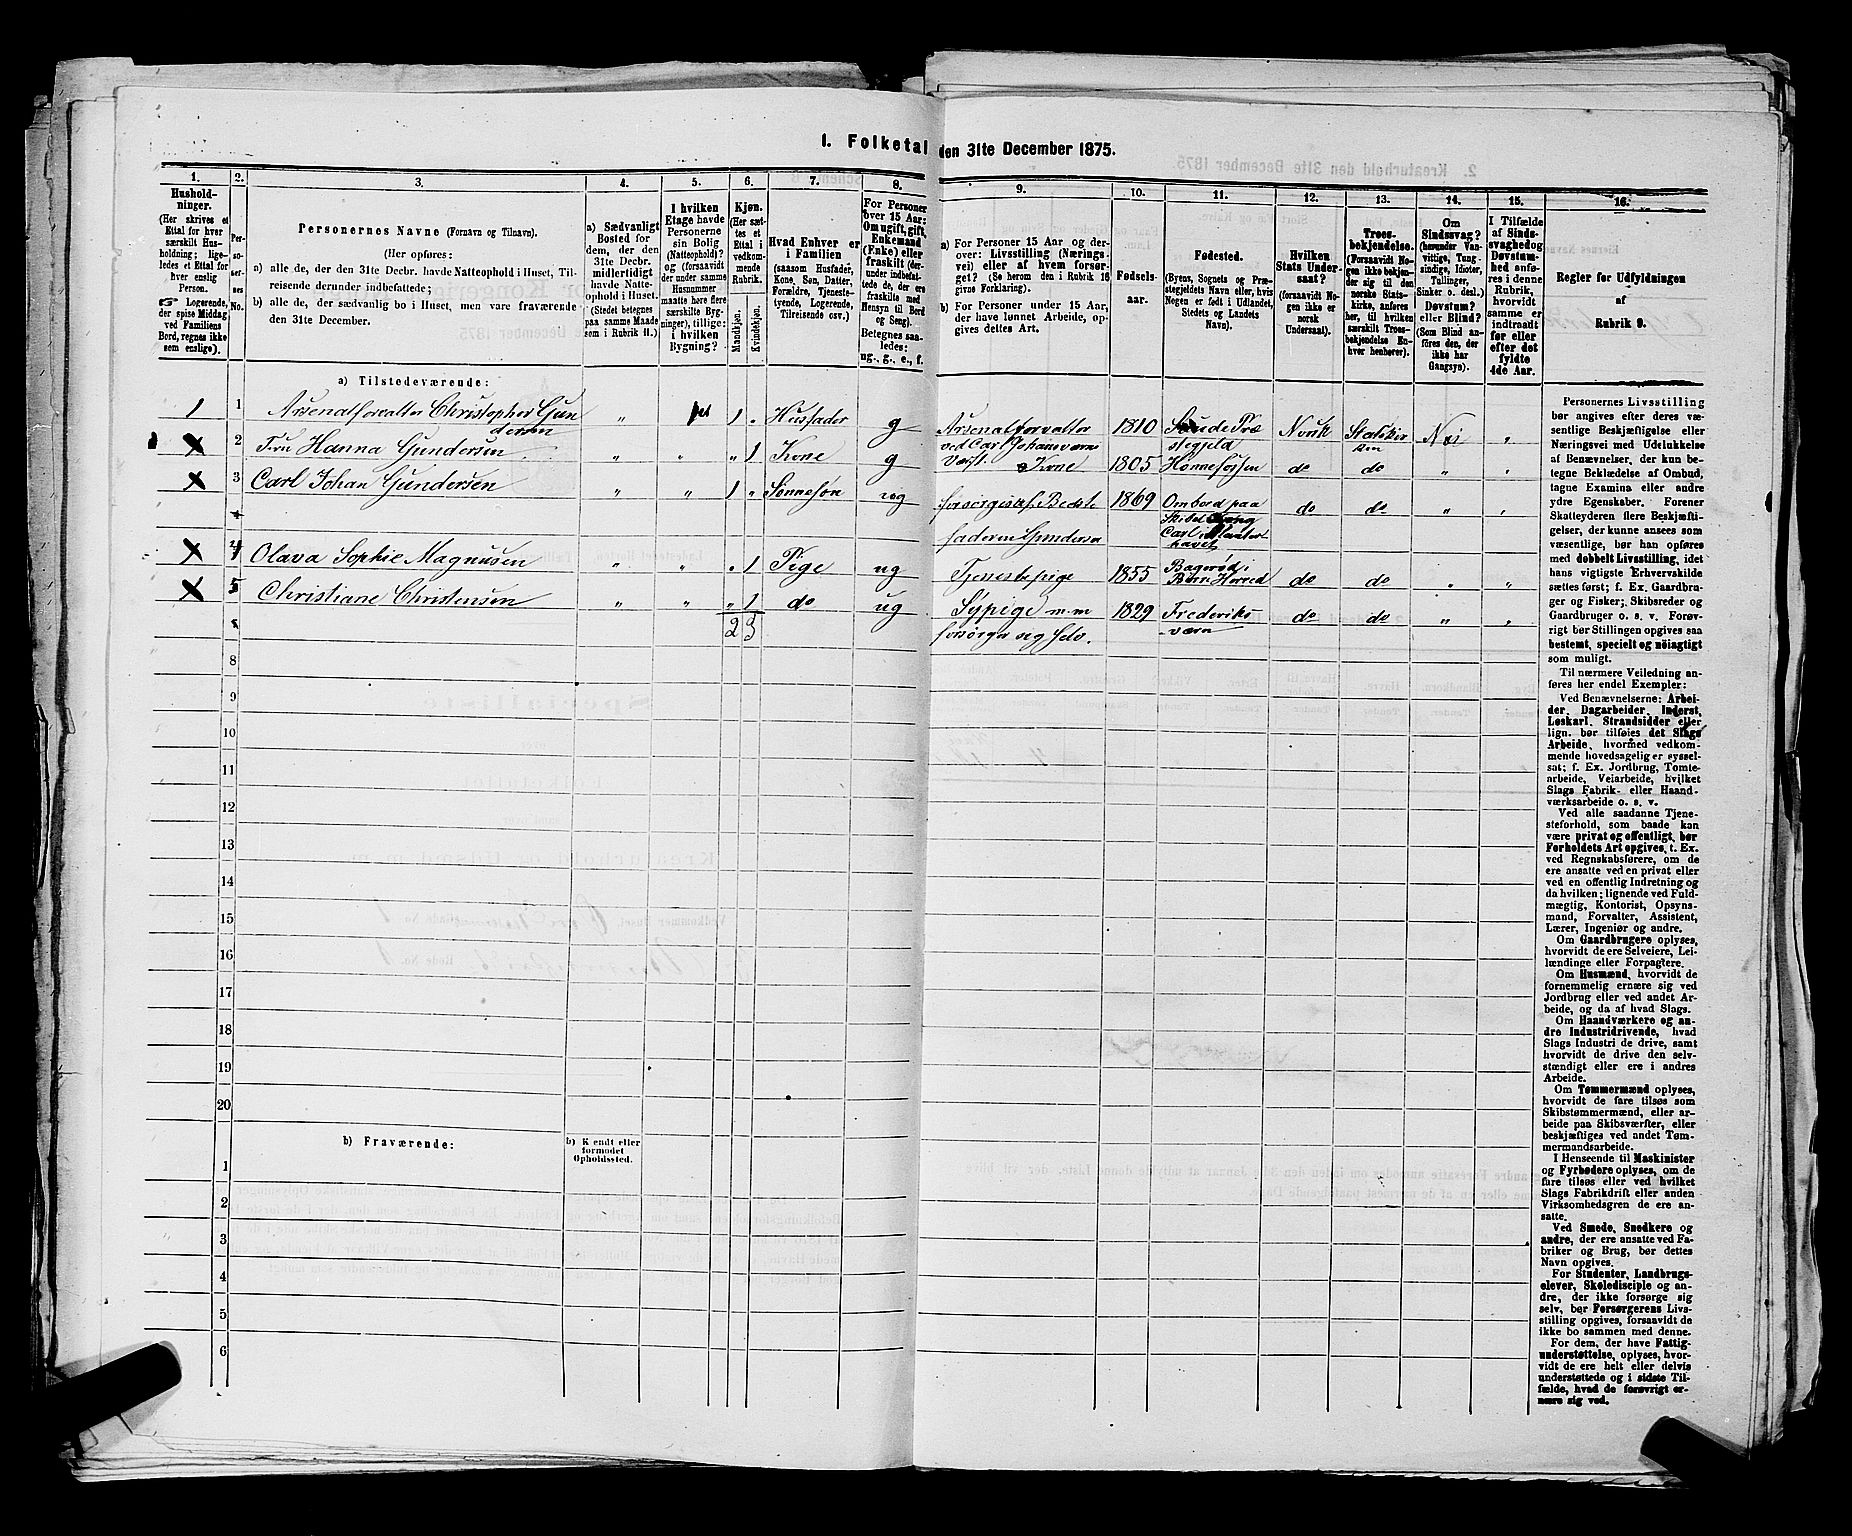 1. Folketal den 31te December 1875.
1.
Hushold-
ninger.
(Her skrives et
Ettal for hver
særskilt Hus-
holdning; lige-
ledes et Ettal for
hver enslig
Person.
☞ Logerende,
der spise Middag
ved Familiens
Bord, regnes ikke
som enslige).
2.
Per-
so-
ner-
nes
No.
3.
Personernes Navne (Fornavn og Tilnavn).
(Her opføres:
a) alle de, der den 31te Decbr. havde Natteophold i Huset, Til-
reisende derunder indbefattede;
b) alle de, der sædvanlig bo i Huset, men vare fraværende
den 31te December.
4.
a) Sædvanligt
Bosted for
dem, der den
31te Decbr.
midlertidigt
havde Natte-
ophold i Huset.
(Stedet betegnes
paa samme Maade
som i Rubrik 11.)
5.
I hvilken
Etage havde
Personerne
sin Bolig
(Natteophold)?
og (forsaavidt
der under samme
Husnummer
maatte høre flere
særskilte Byg-
ninger), tillige:
i hvilken
Bygning?
6.
Kjøn.
(Her sæt-
tes et
Ettal i
vedkom-
mende
Rubrik.
Mandkjøn.
Kvindekjøn.
7.
Hvad Enhver er
i Familien
(saasom Husfader,
Kone, Søn, Datter,
Forældre, Tjeneste-
tyende, Logerende,
Tilreisende osv.)
8.
For Personer
over 15 Aar:
Om ugift, gift,
Enkemand
(Enke) eller
fraskilt (der-
under indbefat-
tede de, der ere
fraskilte med
Hensyn til Bord
og Seng).
Betegnes saa-
ledes:
ug., g., e., f.
9.
a) For Personer 15 Aar og der-
over: Livsstilling (Nærings-
vei) eller af hvem forsør-
get? (Se herom den i Rubrik 16
givne Forklaring).
b) For Personer under 15 Aar,
der have lønnet Arbeide, op-
gives dettes Art.
10.
Fødsels-
aar.
11.
Fødested.
(Byens, Sognets og Præ-
stegjeldets Navn eller, hvis
Nogen er født i Udlandet,
Stedets og Landets
Navn).
12.
Hvilken
Stats Under-
saat?
(forsaavidt No-
gen ikke er
norsk
Undersaat).
13.
Troes-
bekjendelse.
(Forsaavidt No-
gen ikke bekjen-
der sig til den
norske Stats-
kirke, anføres
her, til hvilken
særskilt Troes-
bekjendelse En-
hver henhører).
14.
Om
Sindssvag?
(herunder Van-
vittige, Tung-
sindige, Idioter,
Tullinger,
Sinker o. desl.)
Døvstum?
eller Blind?
(Som Blind an-
føres den, der
ikke har
Gangsyn).
15.
I Tilfælde
af Sinds-
svaghed og
Døvstum-
hed anfø-
res i denne
Rubrik,
hvorvidt
samme er
indtraadt
før eller
efter det
fyldte
4de Aar.
16.
Regler for Udfyldningen
af
Rubrik 9.
a) Tilstedeværende:
1 1 Arsenalforvalter Christopher Gun
dersen " 1ste 1 " Husfader g Arsenalforvalter
ved Carl Johansværns
Værft. 1810 Saude Præ
stegjeld Norsk Statskir
ken Nei "
X 2 Fru Hanna Gundersen " " " 1 Kone g Kone 1805 do do " "
X 3 Carl Johan Gundersen " " 1 " Sønnesøn ug forsørges af Bedste
faderen Gundersen 1869 Ombord paa
Skibet
Carl Atlanter
havet do do " "
X 4 Olava Sophie Magnusen " " " 1 Pige ug Tjenestepige 1855 do do " "
X 5 Christiane Christensen " " " 1 do ug Sypige m.m
forsørger sig selv. 1829 Frederiks
værn do do " "
2 3
8
9
10
11
12
13
14
15
16
17
18
19
20
b) Fraværende:
b) Kjendt eller
formodet
Opholdssted.
1
2
3
4
5
6
Personernes Livsstilling
bør angives efter deres væ-
sentlige Beskjæftigelse eller
Næringsvei med Udelukkelse
af Benævnelser, der kun be-
tegne Beklædelse af Ombud,
tagne Examina eller andre
ydre Egenskaber. Forener
Skatteyderen flere Beskjæfti-
gelser, der kunne ansees som
væsentlige, bør han opføres
med dobbelt Livsstilling, idet
hans vigtigste Erhvervskilde
sættes først; f. Ex. Gaardbru-
ger og Fisker; Skibsreder og
Gaardbruger o. s. v. Forøv-
rigt bør Stillingen opgives saa
bestemt, specielt og nøiagtigt
som muligt.
Til nærmere Veiledning an-
føres her endel Exempler:
Ved Benævnelserne: Arbei-
der, Dagarbeider, Inderst,
Løskarl, Strandsidder eller
lign. bør tilføies det Slags
Arbeide, hvormed vedkom-
mende hovedsagelig er syssel-
sat; f. Ex. Jordbrug, Tomte-
arbeide, Veiarbeide, hvilket
Slags Fabrik- eller Haand-
værksarbeide o. s. v.
Ved alle saadanne Tjene-
steforhold, som baade kan
være privat og offentligt, bør
Forholdets Art opgives, t. Ex.
ved Regnskabsførere, om de
ere ansatte ved en privat eller
ved en offentlig Indretning og
da hvilken; lignende ved Fuld-
mægtig, Kontorist, Opsyns-
mand, Forvalter, Assistent,
Lærer, Ingeniør og andre.
Om Gaardbrugere oplyses,
hvorvidt de ere Selveiere, Lei-
lændinge eller Forpagtere.
Om Husmænd, hvorvidt de
fornemmelig ernære sig ved
Jordbrug eller ved andet Ar-
beide, og da af hvad Slags.
Om Haandværkere og an-
dre Industridrivende, hvad
Slags Industri de drive, samt
hvorvidt de drive den selv-
stændigt eller ere i andres
Arbeide.
Om Tømmermænd oplyses,
hvorvidt de fare tilsøs som
Skibstømmermænd, eller ar-
beide paa Skibsværfter, eller
beskjæftiges ved andet Tøm-
mermandsarbeide.
I Henseende til Maskinister
og Fyrbødere oplyses, om de
fare tilsøs eller ved hvilket
Slags Fabrikdrift eller anden
Virksomhedsgren de ere an-
satte.
Ved Smede, Snedkere og
andre, der ere ansatte ved Fa-
briker og Brug, bør dettes
Navn opgives.
For Studenter, Landbrugs-
elever, Skoledisciple og an-
dre, der ikke forsørge sig
selv, bør Forsørgerens Livs-
stilling opgives, forsaavidt de
ikke bo sammen med denne.
For dem, der have Fattig-
understøttelse, oplyses, hvor-
vidt de ere helt eller delvis
understøttede og i sidste Til-
fælde, hvad de forøvrigt er-
nære sig ved.